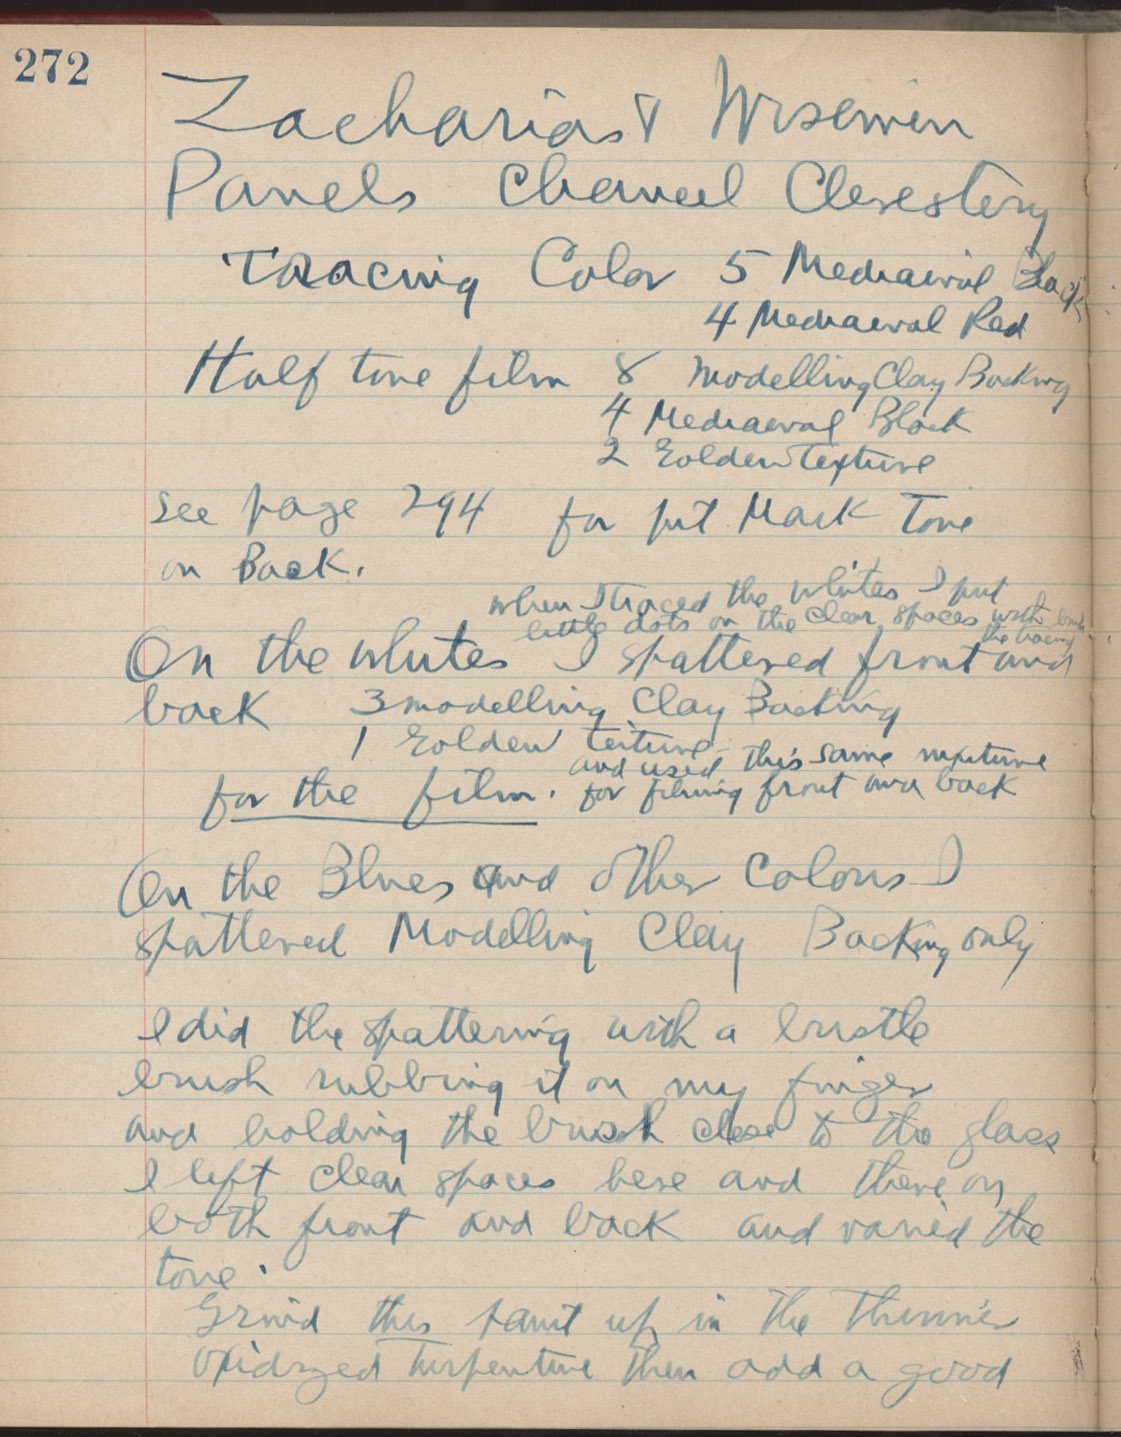 272
Zacharias & Wisemen
Panels Chancel Clerestory
Tracing Color 5 Mediaeval Black
4 Mediaeval Red
Half tone film 8 Modelling Clay Backing
4 Mediaeval Black
2 Golden Texture
See page 294 for put Mark Tone
on Back.
when I traced the whites I put
little dots on the clear spaces with
the tracing
On the whites I spattered front and
back 3 modelling Clay Backing
1 Golden texture
and used this same mixture
for the film. for filming front and back
On the Blues and other Colours I
spattered Modelling Clay Backing only
I did the spattering with a bristle
brush rubbing it on my finger
and holding the brush close to the glass
I left clear spaces here and there on
both front and back and varied the
tone.
Grind this paint up in the thinner
Oxidized Turpentine then add a good